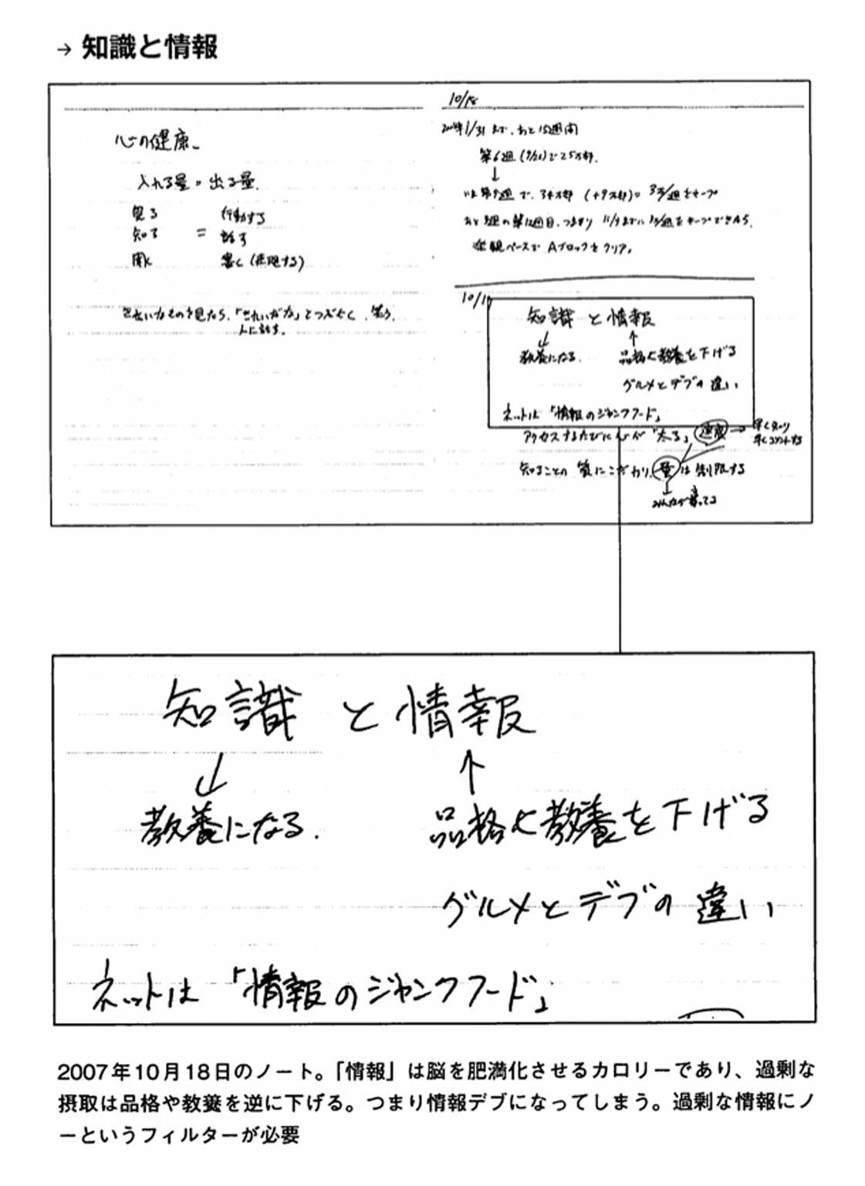 → 知識と情報
心の健康
入れる量=出る量
見る 行動する
知る = 話す
聞く 書く(表現する)
きれいなものを見たら、「きれいだな」とつぶやく、笑う、
人に話す。
10/18
1/31まで、あと15週間
第6週 で25万部。
↓
で、34万部 (+9万部)= をキープ
Aブロックをクリア。
10/18
知識 と 情報
↓ ↑
教養になる。 品格と教養を下げる
グルメとデブの違い
ネットは「情報のジャンクフード」
アクセスするたびに心が「太る」 速度 → 早く知り
早くコメントする
知ることの質にこだわり、量は制限する
↓
みんなが

知識 と 情報
↓ ↑
教養になる. 品格と教養を下げる
グルメとデブの違い
ネットは「情報のジャンクフード」
2007年10月18日のノート。「情報」は脳を肥満化させるカロリーであり、過剰な
摂取は品格や教養を逆に下げる。つまり情報デブになってしまう。過剰な情報にノ
ーというフィルターが必要